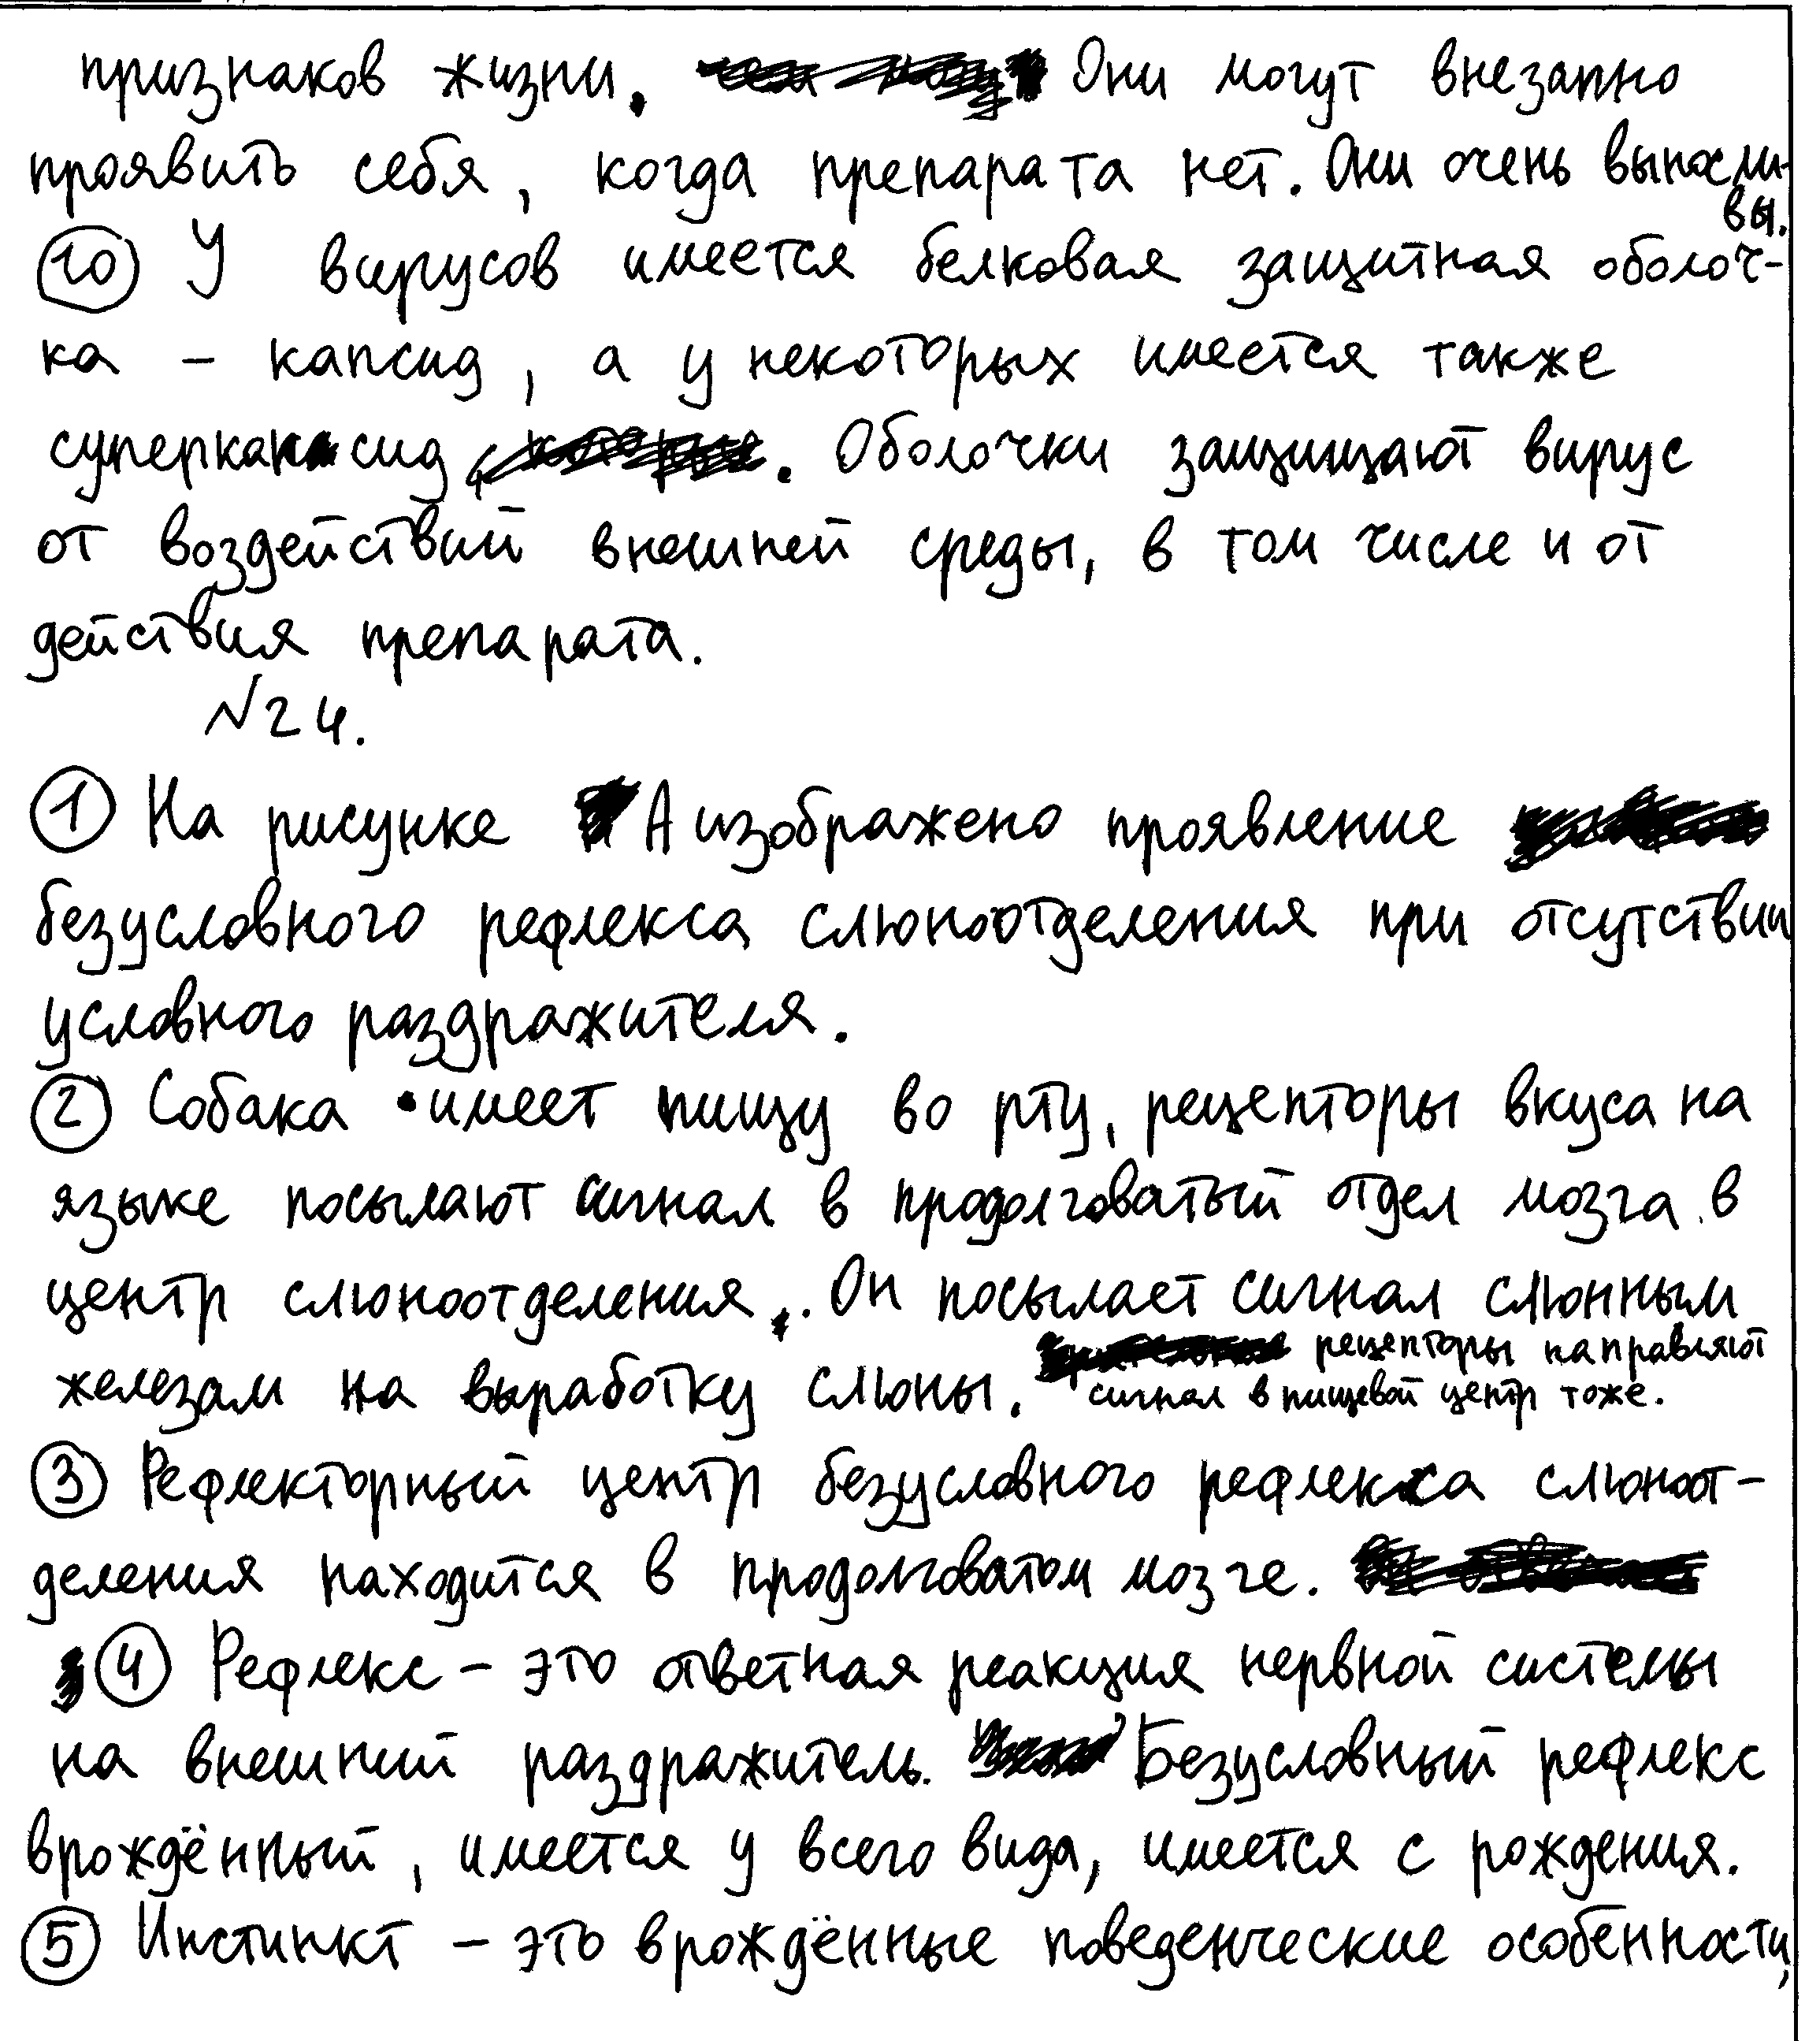 признаков жизни. Они могут внезапно
проявить себя, когда препарата нет. Они очень выносли-
вы.
10 У вирусов имеется белковая защитная оболоч-
ка - капсид, а у некоторых имеется также
суперкапсид. Оболочки защищают вирус
от воздействий внешней среды, в том числе и от
действия препарата.
№24.
1 На рисунке А изображено проявление
безусловного рефлекса слюноотделения при отсутствии
условного раздражителя.
2 Собака имеет пищу во рту, рецепторы вкуса на
языке посылают сигнал в продолговатый отдел мозга в
центр слюноотделения. Он посылает сигнал слюнным
железам на выработку слюны. рецепторы направляют
сигнал в пищевой центр тоже.
3 Рефлекторный центр безусловного рефлекса слюноот-
деления находится в продолговатом мозге.
4 Рефлекс - это ответная реакция нервной системы
на внешний раздражитель. Безусловный рефлекс
врождённый, имеется у всего вида, имеется с рождения.
5 Инстинкт - это врождённые поведенческие особенности,